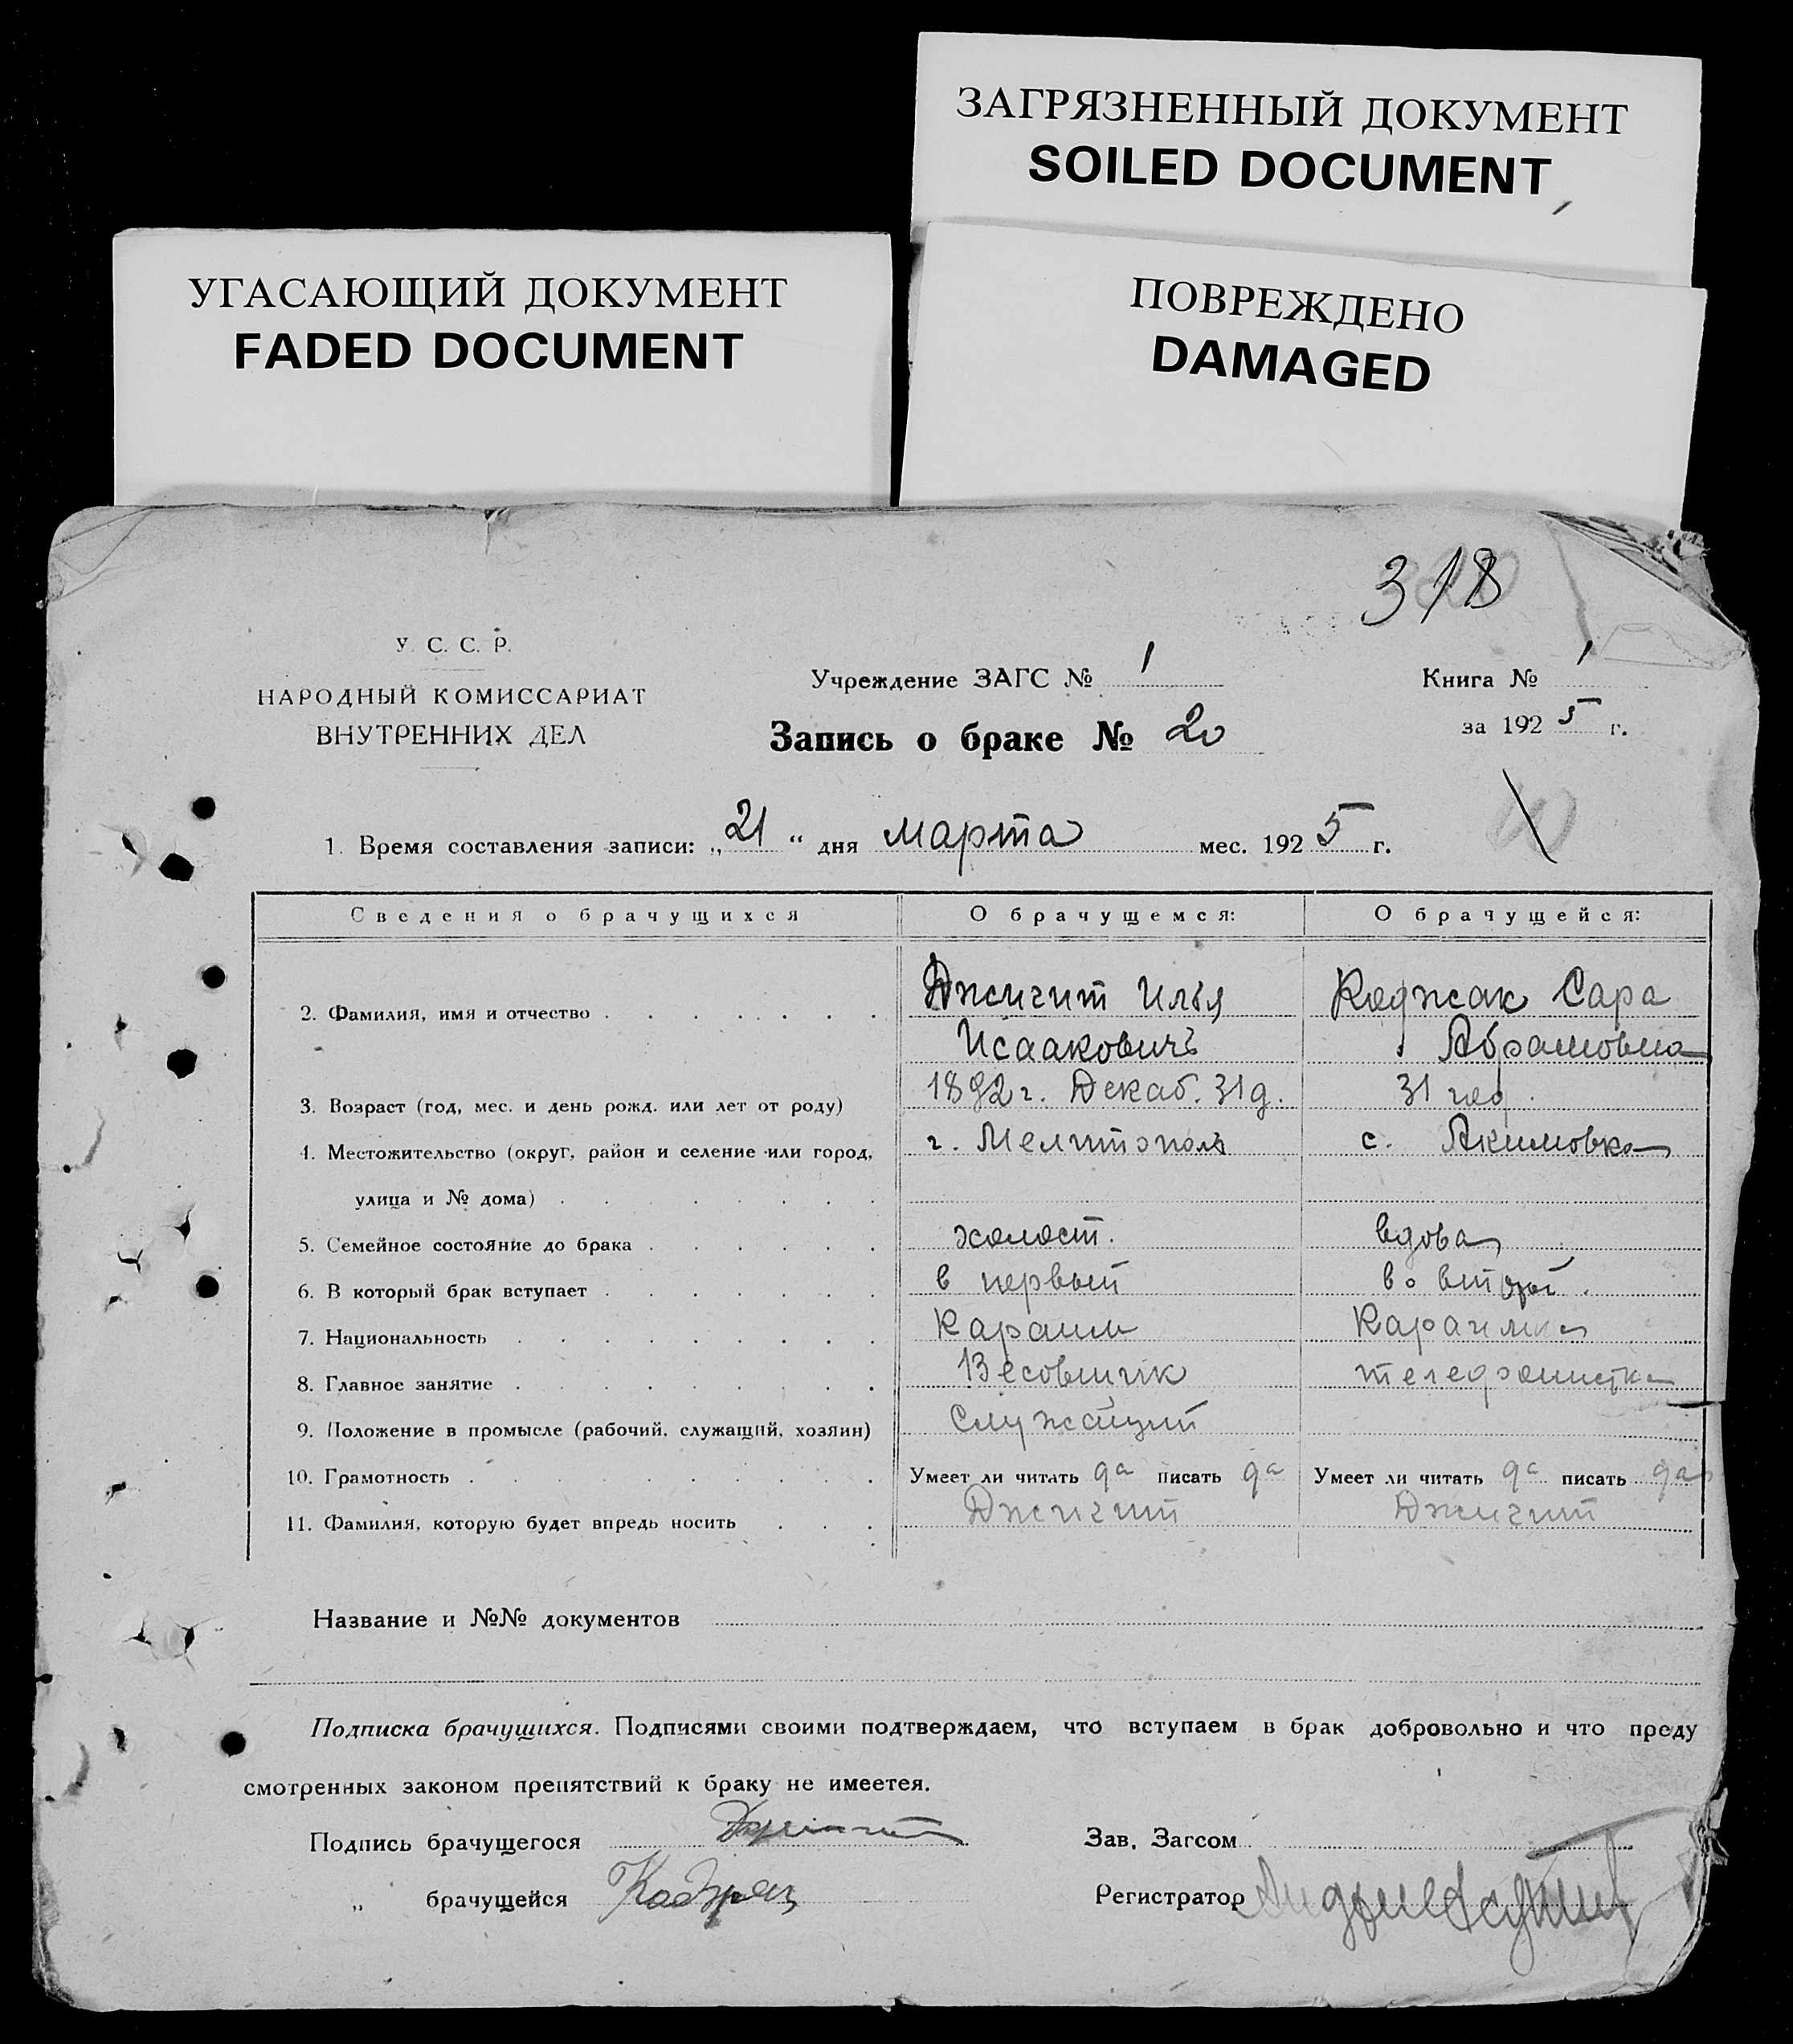 ЗАГРЯЗНЕННЫЙ ДОКУМЕНТ
SOILED DOCUMENT
УГАСАЮЩИЙ ДОКУМЕНТ
FADED DOCUMENT
ПОВРЕЖДЕНО
DAMAGED
318
У. С. С. Р.
НАРОДНЫЙ КОМИССАРИАТ
ВНУТРЕННИХ ДЕЛ
Учреждение ЗАГС № 1
Книга № 1
Запись о браке № 20
за 1925 г.
1. Время составления записи: „21“ дня марта мес. 1925 г.
Сведения о брачущихся О брачущемся: О брачущейся:
2. Фамилия, имя и отчество Джигит Илья Коджак Сара
Исаакович Абрамовна
3. Возраст (год, мес. и день рожд. или лет от роду) 1892 г. Декаб. 31 д. 31 год.
4. Местожительство (округ, район и селение или город, г. Мелитополь с. Акимовка
улица и № дома)
5. Семейное состояние до брака холост. вдова
6. В который брак вступает в первый во второй.
7. Национальность Караим Караимка
8. Главное занятие Весовщик телефонистка
9. Положение в промысле (рабочий, служащий, хозяин) Служащий
10. Грамотность Умеет ли читать да писать да Умеет ли читать да писать да
11. Фамилия, которую будет впредь носить Джигит Джигит
Название и №№ документов
Подписка брачущихся. Подписями своими подтверждаем, что вступаем в брак добровольно и что преду
смотренных законом препятствий к браку не имеетея.
Подпись брачущегося Джигит Зав. Загсом
„ брачущейся Регистратор